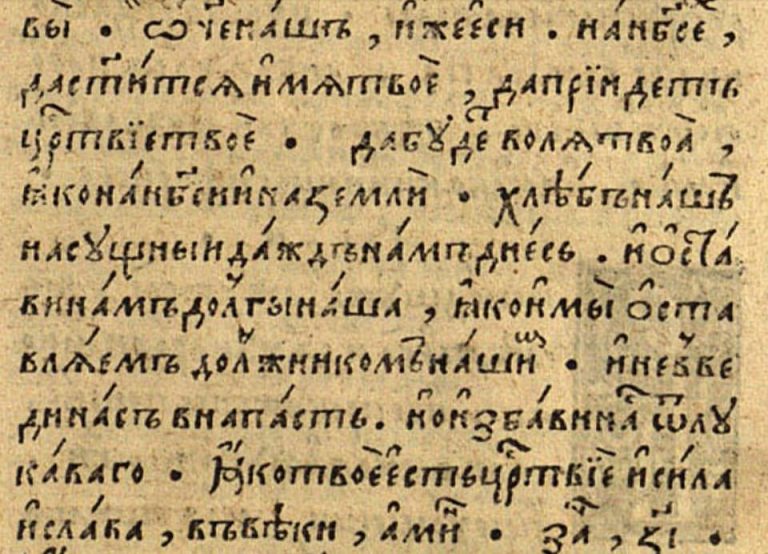 вы̀ . ѿч҃енашъ , и҆жеѐси . нан҃бсѐ ,
дастⷮи́тсѧи҆мѧтвоѐ , дапрїидетъ
црⷭ҇твїетвоѐ . дабꙋ́деⷮволѧтвоа̀ ,
ꙗ҆конан҃бсиина̀земли̑ . хлѣ́бъна́шъ
насꙋщныида́ждьна́мъдне́сь . и҆ѻ҆ста́
вина́мъдо́лгына́ша , ꙗ҆кои҆мы̀ѻ҆ста
влѧ́емъдолжникомъна́шиⷨ . и҆невъве
дина́съвнапа́сть . но̀и҆зба́винаⷭ҇ ѿлꙋ
ка́ваго . Ꙗ҆котвоѐе҆́стьцрⷭ҇твїе и҆си́ла
и҆сла́ва , въвѣ́ки , а҆ми́н . за҇ , к҃і .